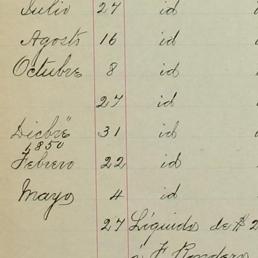 Julio 27 id
Agosto 16 id
Octubre 8 id
27 id
Dicbrē 31 id
1850
Febrero 22 id
Mayo 4 id
27 Líquido de